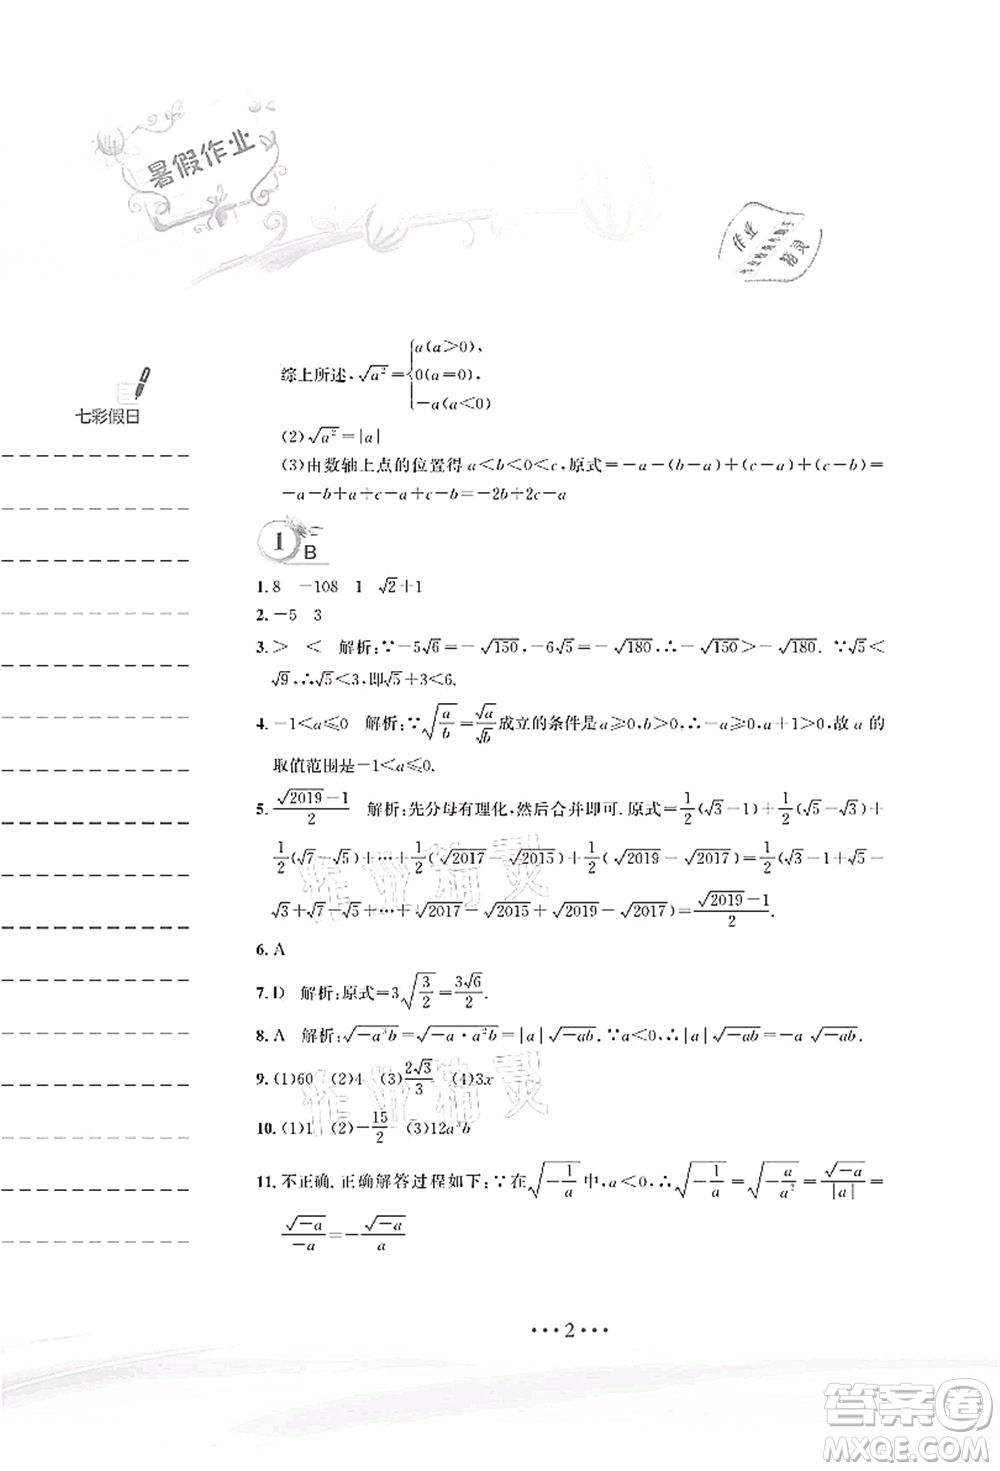 暑假作业
作业
精灵
七彩假日
综上所述,√a² = { a(a>0), 0(a=0), -a(a<0)
(2)√a² = |a|
(3)由数轴上点的位置得 a<b<0<c,原式=-a-(b-a)+(c-a)+(c-b)=
-a-b+a+c-a+c-b=-2b+2c-a
1 B
1. 8 -108 1 √2+1
2. -5 3
3. > < 解析:∵-5√6=-√150,-6√5=-√180,∴-√150>-√180. ∵√5<
√9,∴√5<3,即√5+3<6.
4. -1<a≤0 解析:∵√(a/b)=√a/√b 成立的条件是a≥0,b>0,∴-a≥0,a+1>0,故 a 的
取值范围是-1<a≤0.
5. (√2019-1)/2 解析:先分母有理化,然后合并即可.原式=1/2(√3-1)+1/2(√5-√3)+
1/2(√7-√5)+…+1/2(√2017-√2015)+1/2(√2019-√2017)=1/2(√3-1+√5-
√3+√7-√5+…+√2017-√2015+√2019-√2017)=(√2019-1)/2.
6. A
7. D 解析:原式=3√(3/2)=3√6/2.
8. A 解析:√(-a³b)=√(-a·a²b)=|a|√(-ab). ∵a<0,∴|a|√(-ab)=-a√(-ab).
9. (1)60 (2)4 (3)2√3/3 (4)3x
10. (1)1 (2)-15/2 (3)12a³b
11. 不正确.正确解答过程如下:∵在√(-1/a)中,a<0,∴√(-1/a)=√(-a/a²)=√(-a)/|a|=
√(-a)/-a=-√(-a)/a
作业精灵
作业精灵
···2···
答案圈
MXQE.COM